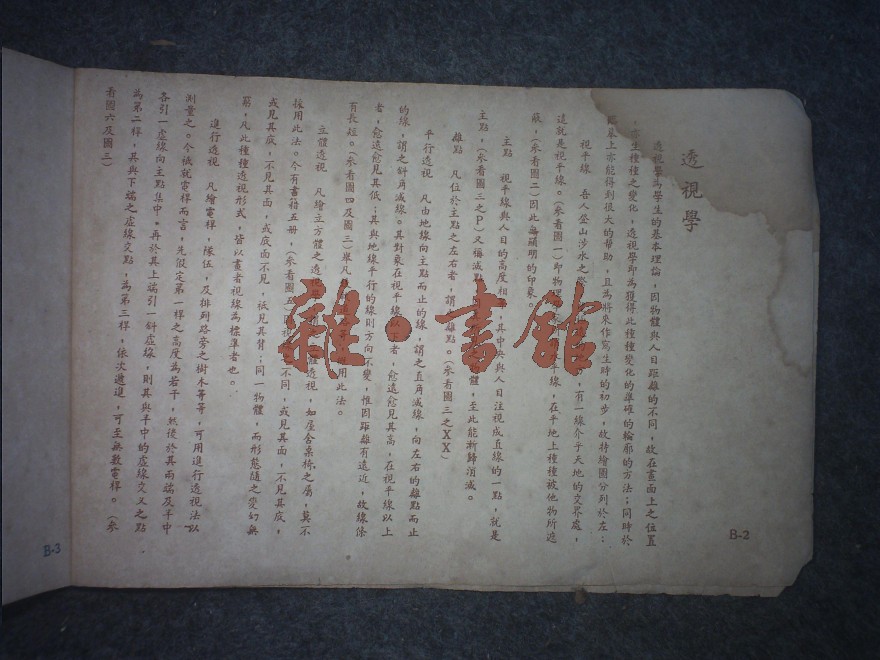 透視學
透視學為學生的基本理論，因物體與人目距離的不同，故在畫面上之位置
亦生種種之變化，透視學即為獲得此種種變化的準確的輪廓的方法；同時於
上亦能得到很大的幫助，且為將來作寫生時的初步，故特繪圖分列於左：
視平線　吾人登山涉水之 有一線介乎天地的交界處，
這就是視平線。（參看圖一）即物 平線，在平地上種種被他物所遮
蔽，（參看圖二）因此 顯明的印象。
主點　視平線與人目的高度相 其中央與人目注視成直線的一點，就是
主點，（參看圖三之P）又稱滅 體，至此能漸歸消滅。
離點　凡位於主點之左右者，謂 離點。（參看圖三之XX）
平行透視　凡由地線向主點而止的線，謂之直角滅線，向左右的離點而止
的線，謂之斜角滅線。其對象在視平線以下者，愈遠愈見其高，在視平線以上
者，愈遠愈見其低；其與地線平行的線則方向不變，惟因距離有遠近，故線條
有長短。（參看圖四及圖三）舉凡 用此法。
立體透視　凡繪立方體之透視 體透視，如屋舍桌椅之屬，莫不
採用此法。今有書籍五冊，（參看圖五） 不同，或見其面，不見其底，
或見其底，不見其面，或底面不見，祇見其背；同一物體，而形態隨之變幻無
窮，凡此種種透視形式，皆以畫者視線為標準者也。
進行透視　凡繪電桿，隊伍，及排列路旁之樹木等等，可用進行透視法以
測量之。今試就電桿而言，先假定第一桿之高度為若干，然後於其兩端及半中
各引一虛線向主點集中。再於其上端引一斜虛線，則其與半中的虛線交叉之點
為第二桿，其與下端之虛線交點，為第三桿，依次遞進，可至無數電桿。（參
看圖六及圖三）
B-2
B-3
雜·書館